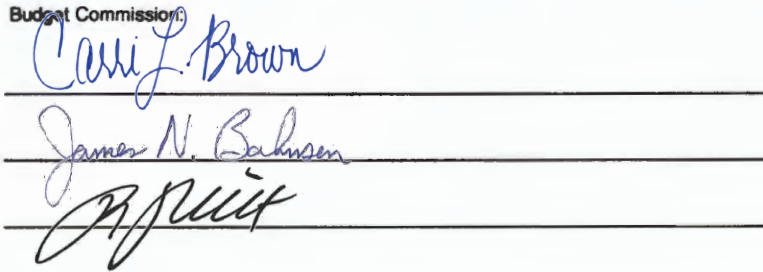 Budget Commission:
Carri L. Brown
James N. Bahnsen